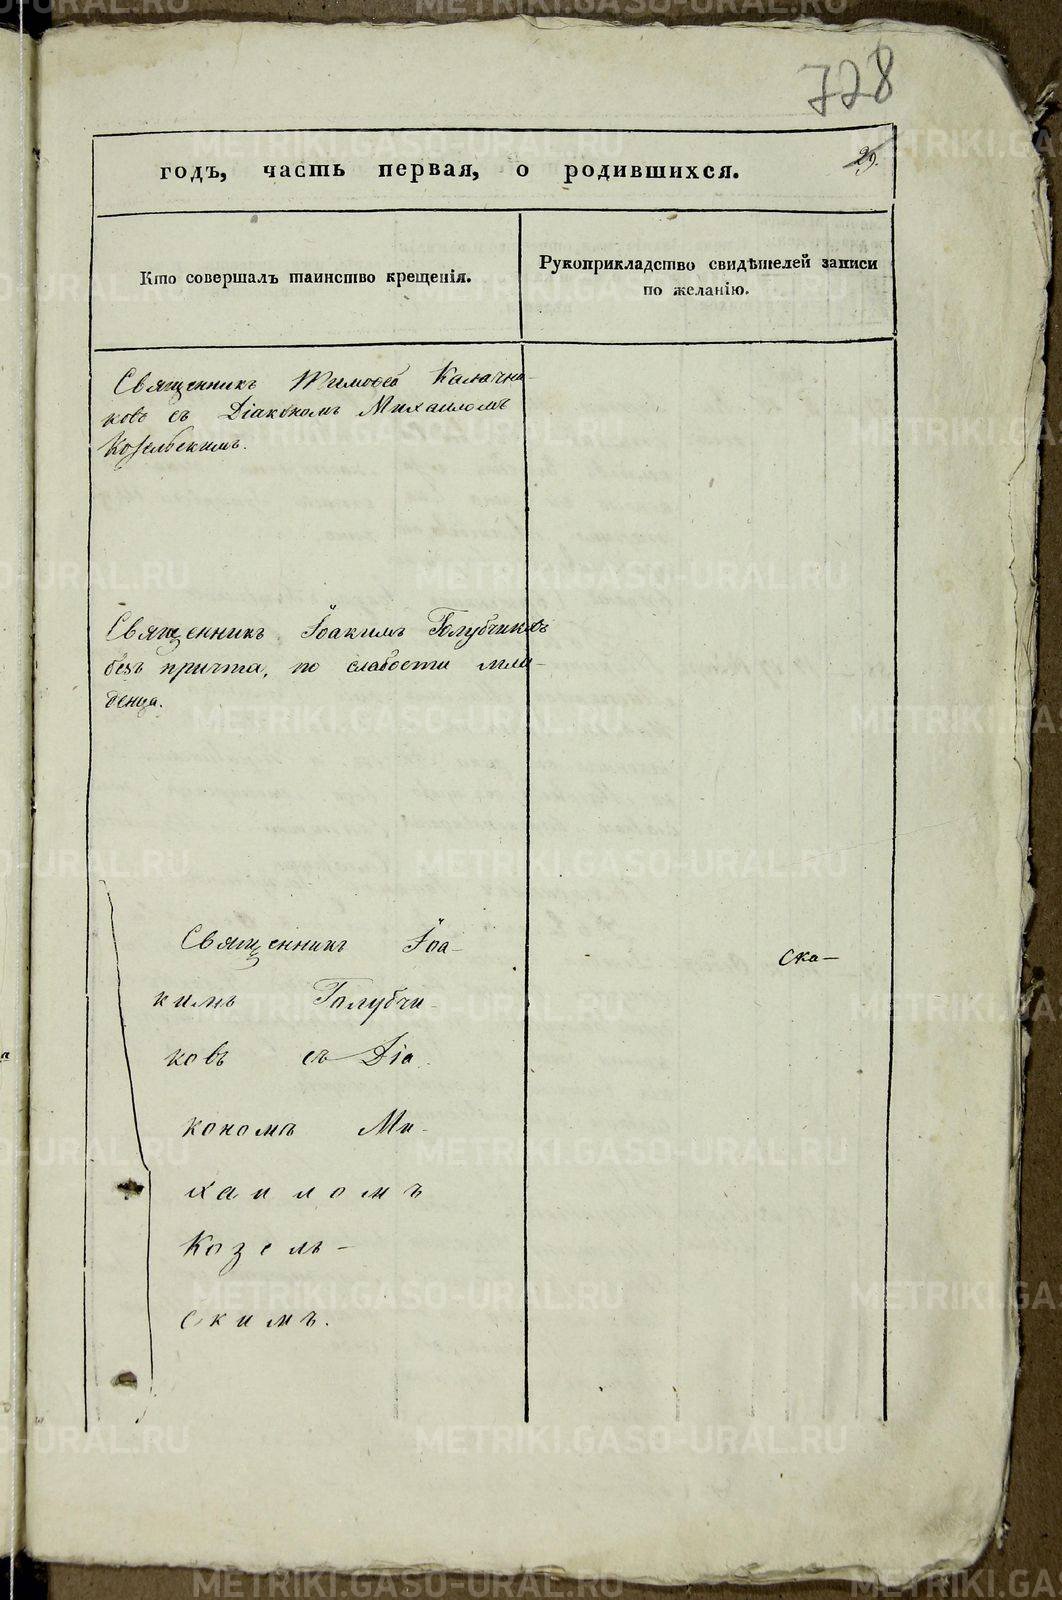 728
годъ, часть первая, о родившихся.
29.
Кто совершалъ таинство крещенія.
Рукоприкладство свидѣтелей записи
по желанію.
Священникъ Тимофей Калачни-
ковъ съ Діакономъ Михаиломъ
Козельскимъ.
Священникъ Іоакимъ Голубчиковъ
безъ причта, по слабости мла-
денца.
Священникъ Іоа-
кимъ Голубчи-
ковъ съ Діа-
кономъ Ми-
хаиломъ
Козель-
скимъ.
Ска-
METRIKI.GASO-URAL.RU